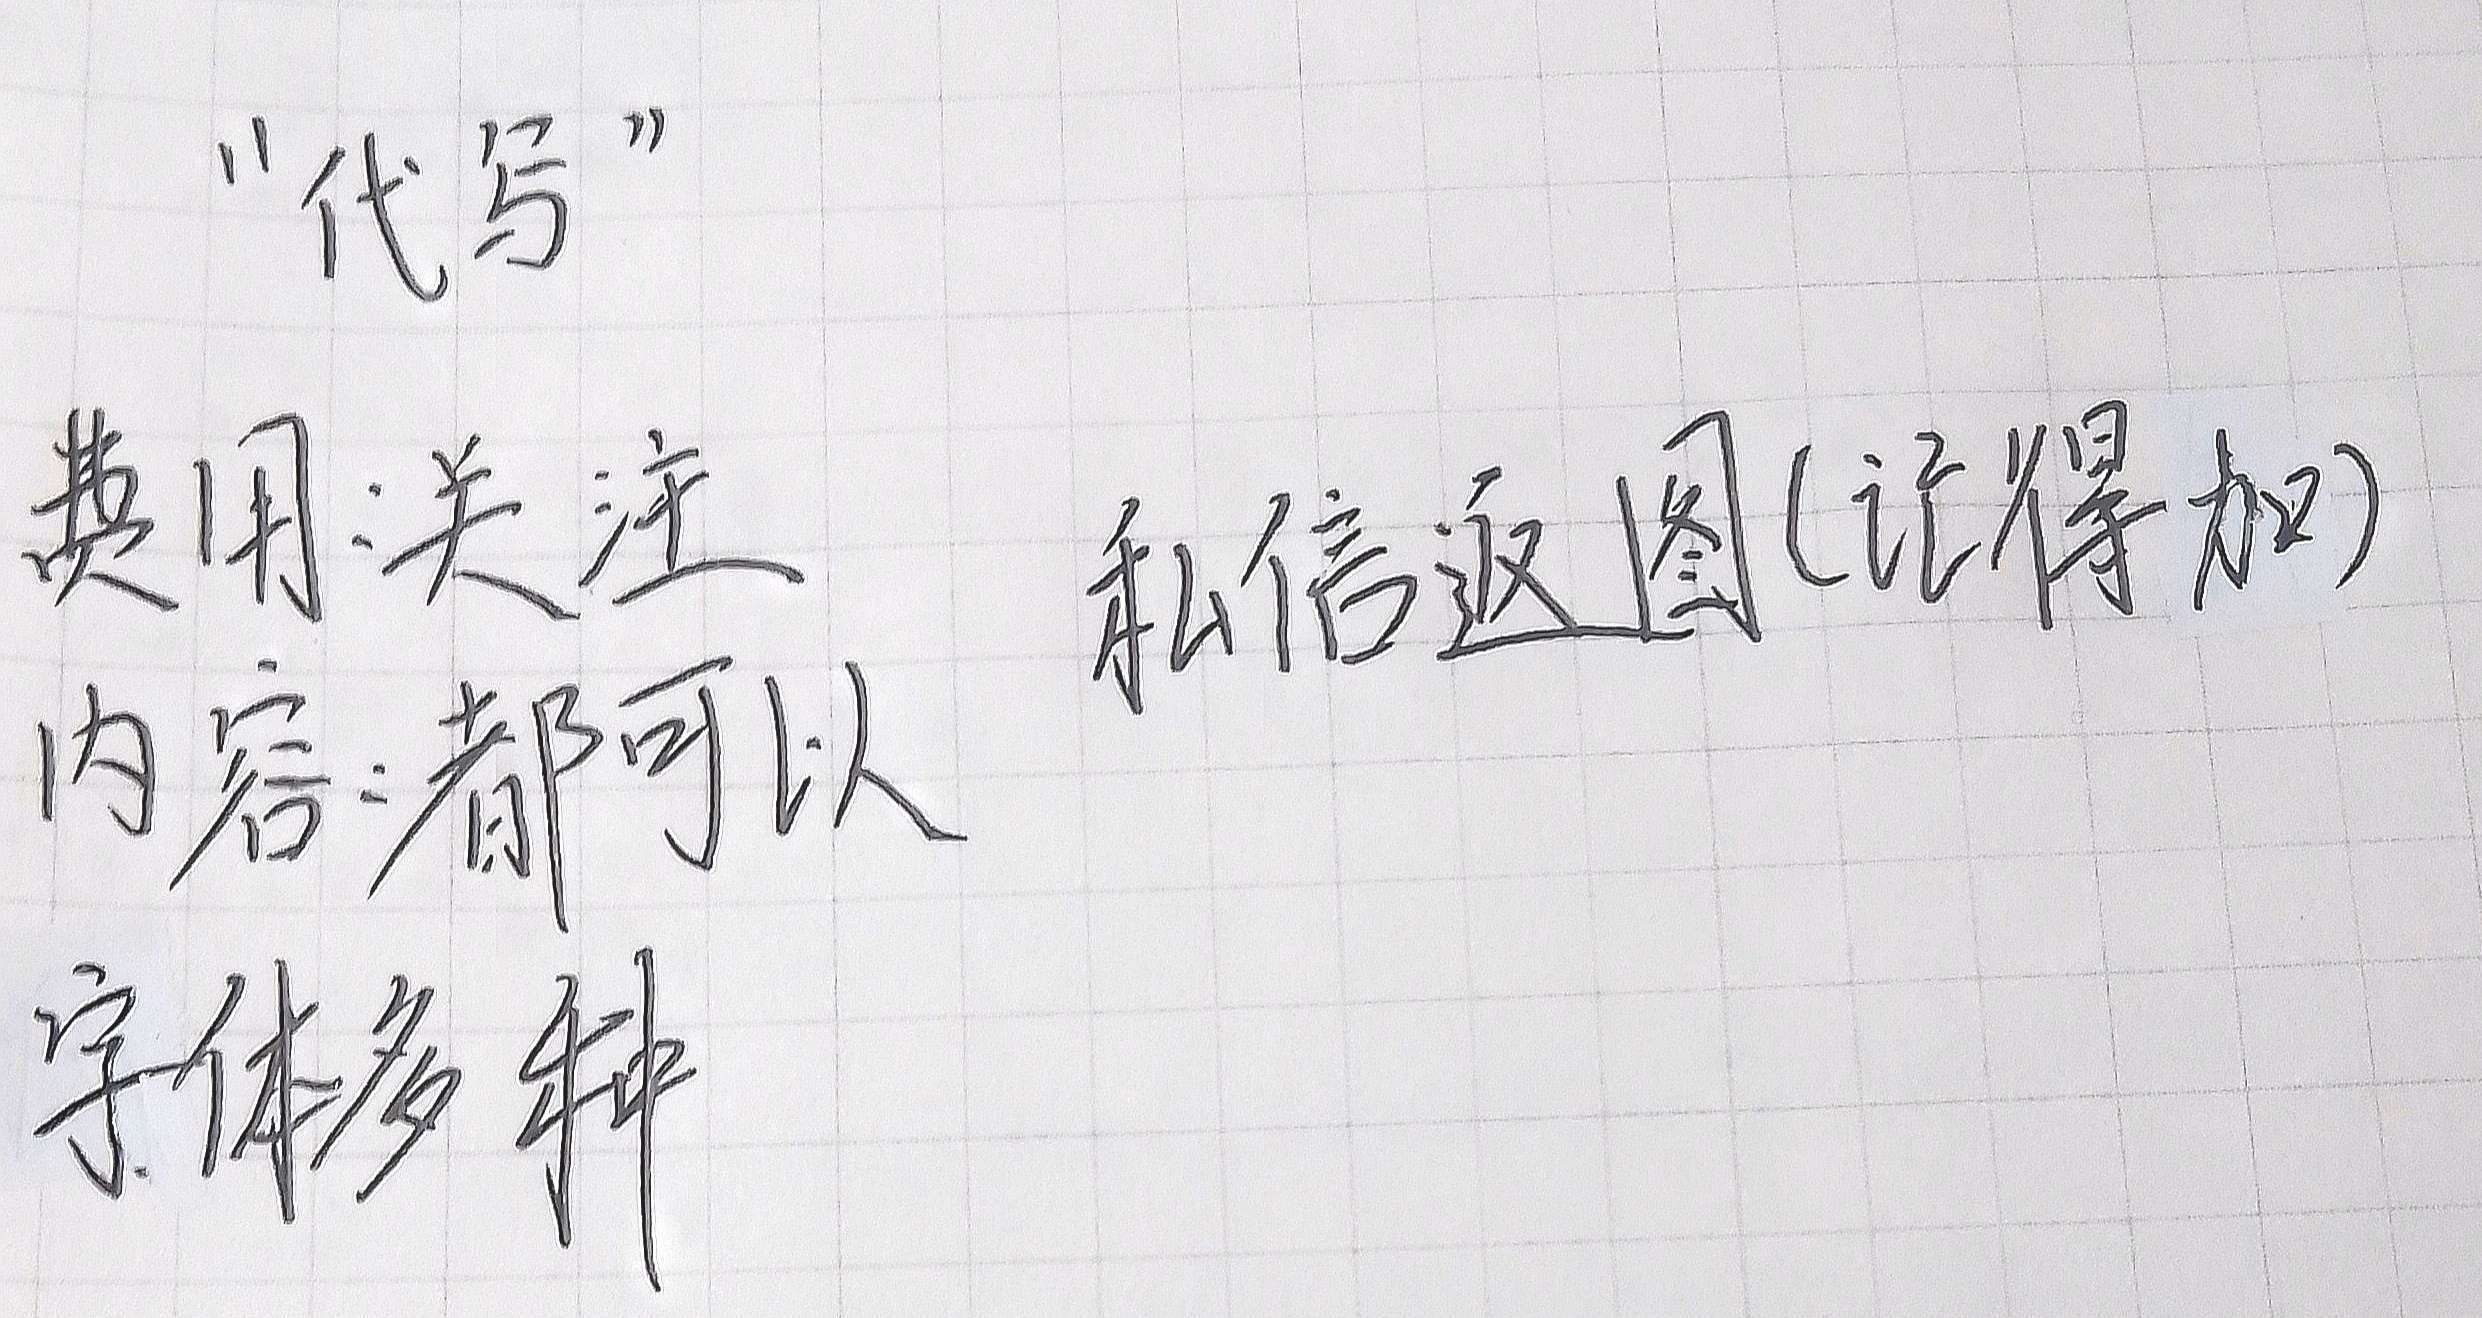 “代写”
费用:关注
私信返图(记得加)
内容:都可以
字体多种